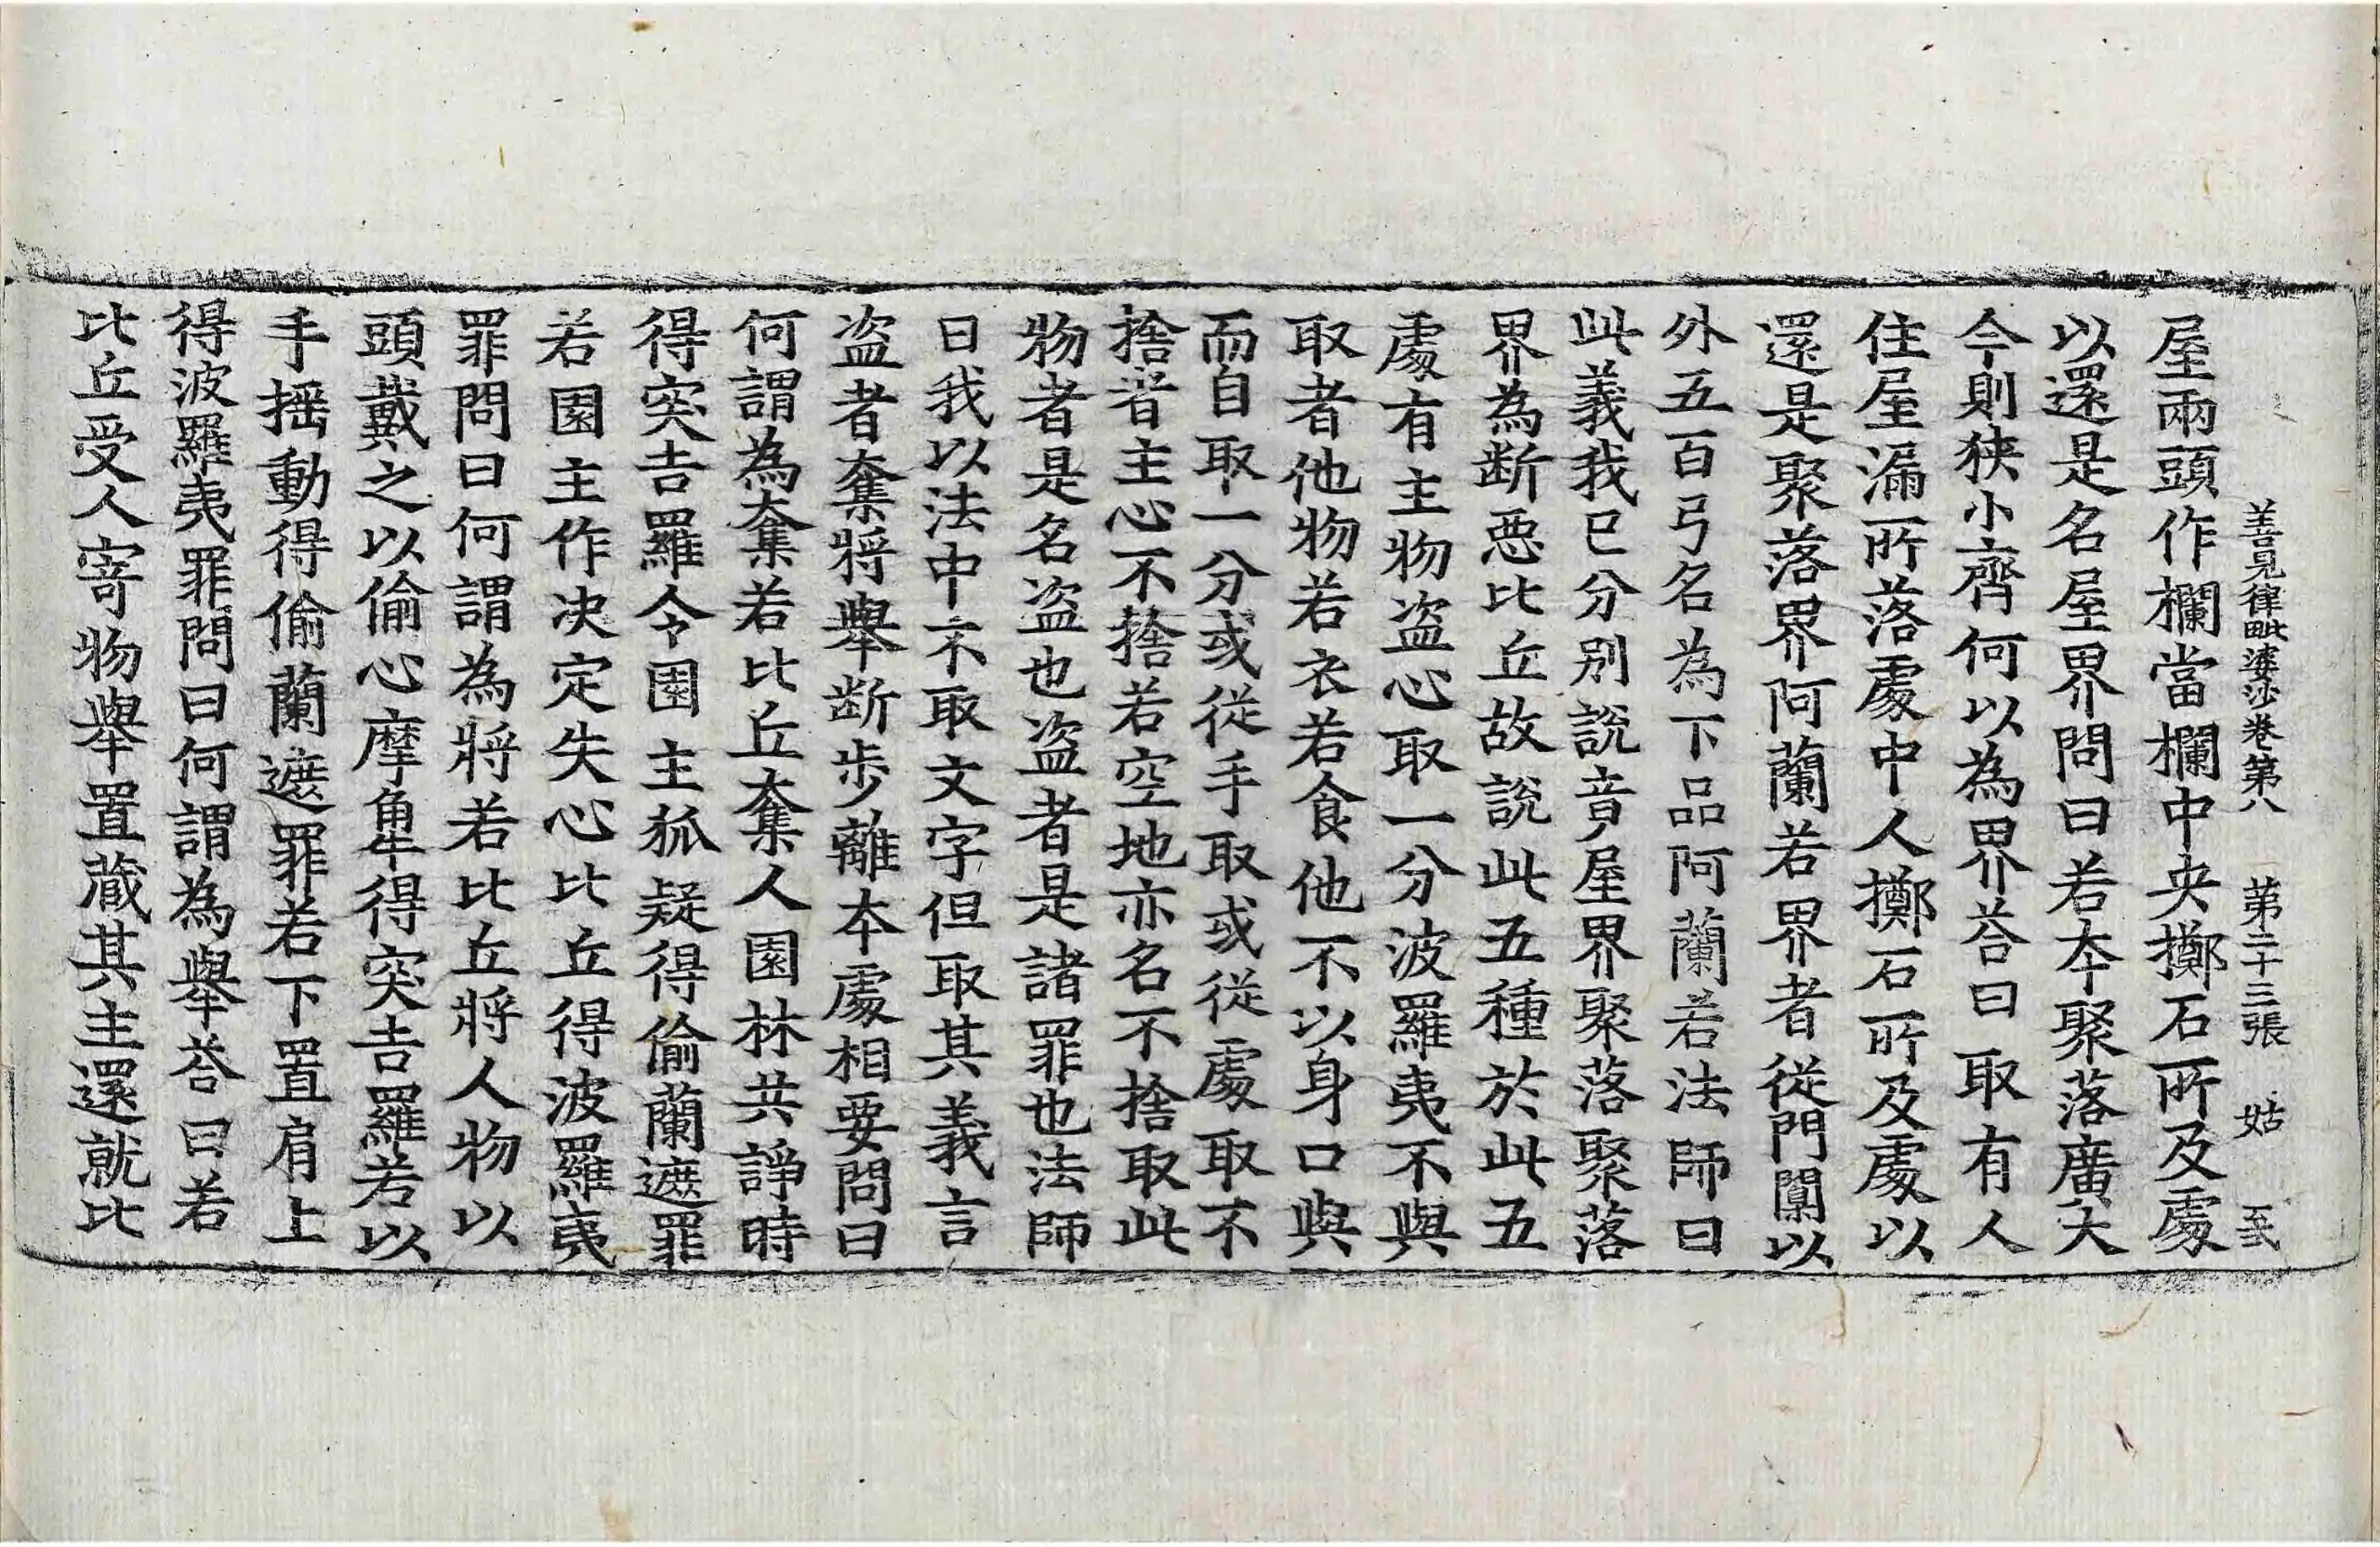 善見律毗婆沙卷第八 第二十三張 姑
屋兩頭作欄當欄中央擲石所及處
以還是名屋界問曰若本聚落廣大
今則狹小齊何以為界荅曰取有人
住屋漏所落處中人擲石所及處以
還是聚落界阿蘭若界者從門闑以
外五百弓名為下品阿蘭若法師曰
此義我已分別說竟屋界聚落聚落
界為断惡比丘故說此五種於此五
處有主物盗心取一分波羅夷不與
取者他物若衣若食他不以身口與
而自取一分或從手取或從處取不
捨者主心不捨若空地亦名不捨取此
物者是名盗也盗者是諸罪也法師
曰我以法中不取文字但取其義言
盗者奪將舉断步離本處相要問曰
何謂為奪若比丘奪人園林共諍時
得突吉羅令園主狐疑得偷蘭遮罪
若園主作决定失心比丘得波羅夷
罪問曰何謂為將若比丘將人物以
頭戴之以偷心摩觸得突吉羅若以
手揺動得偷蘭遮罪若下置肩上
得波羅夷罪問曰何謂為舉荅曰若
比丘受人寄物舉置蔵其主還就比